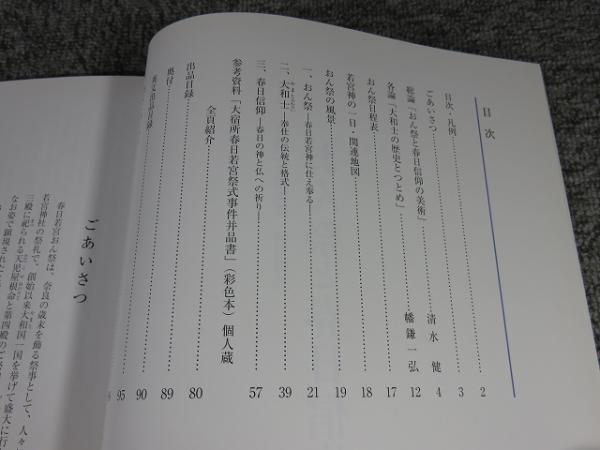 目次
目次・凡例 2
ごあいさつ 3
総論「おん祭と春日信仰の美術」 清水 健 4
各論「大和士の歴史とつとめ」 幡鎌一弘 12
おん祭日程表 17
若宮神の一日・関連地図 18
おん祭の風景 19
一、おん祭―春日若宮神に仕え奉る― 21
二、大和士―奉仕の伝統と格式― 39
三、春日信仰―春日の神と仏への祈り― 57
参考資料「大宿所春日若宮祭式事件并品書」(彩色本)個人蔵
全頁紹介 80
出品目録 89
奥付 90
英文出品目録 95
ごあいさつ
春日若宮おん祭は、奈良の歳末を飾る祭事として、人々
若宮神社の祭礼で、創始以来大和国一国を挙げて盛大に行
三殿に祀られる天児屋根命と第四殿のご
なお姿で顕現された